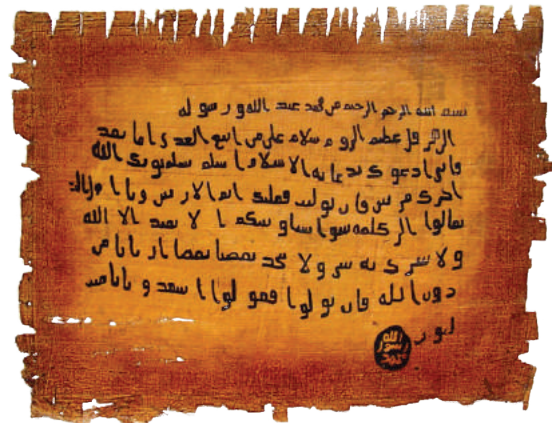 بسم الله الرحمن الرحيم من محمد عبد الله ورسوله
الى هرقل عظيم الروم سلام على من اتبع الهدى اما بعد
فانى ادعوك بدعاية الاسلام اسلم تسلم يوتك الله
اجرك مرتين فان توليت فعليك اثم الاريسين ويا اهل
تعالوا الى كلمة سوا بيننا وبينكم ا لا نعبد الا الله
ولا نشرك به شى ولا يتخذ بعضنا بعضا اربابا من
دون الله فان تولوا فقولوا اشهدو بانا مس
لمون
الله
رسول
محمد